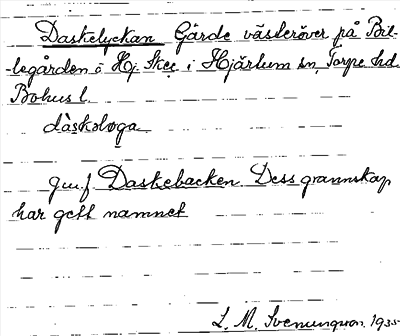 Daskelyckan Gärde västeröver på Bit-
-legården i Hj. Skee i Hjärtum sn, Torpe hd.
Bohus l.
daskeløga
jmf. Daskebacken. Dess grannskap
har gett namnet
L. M. Svenungsson. 1935